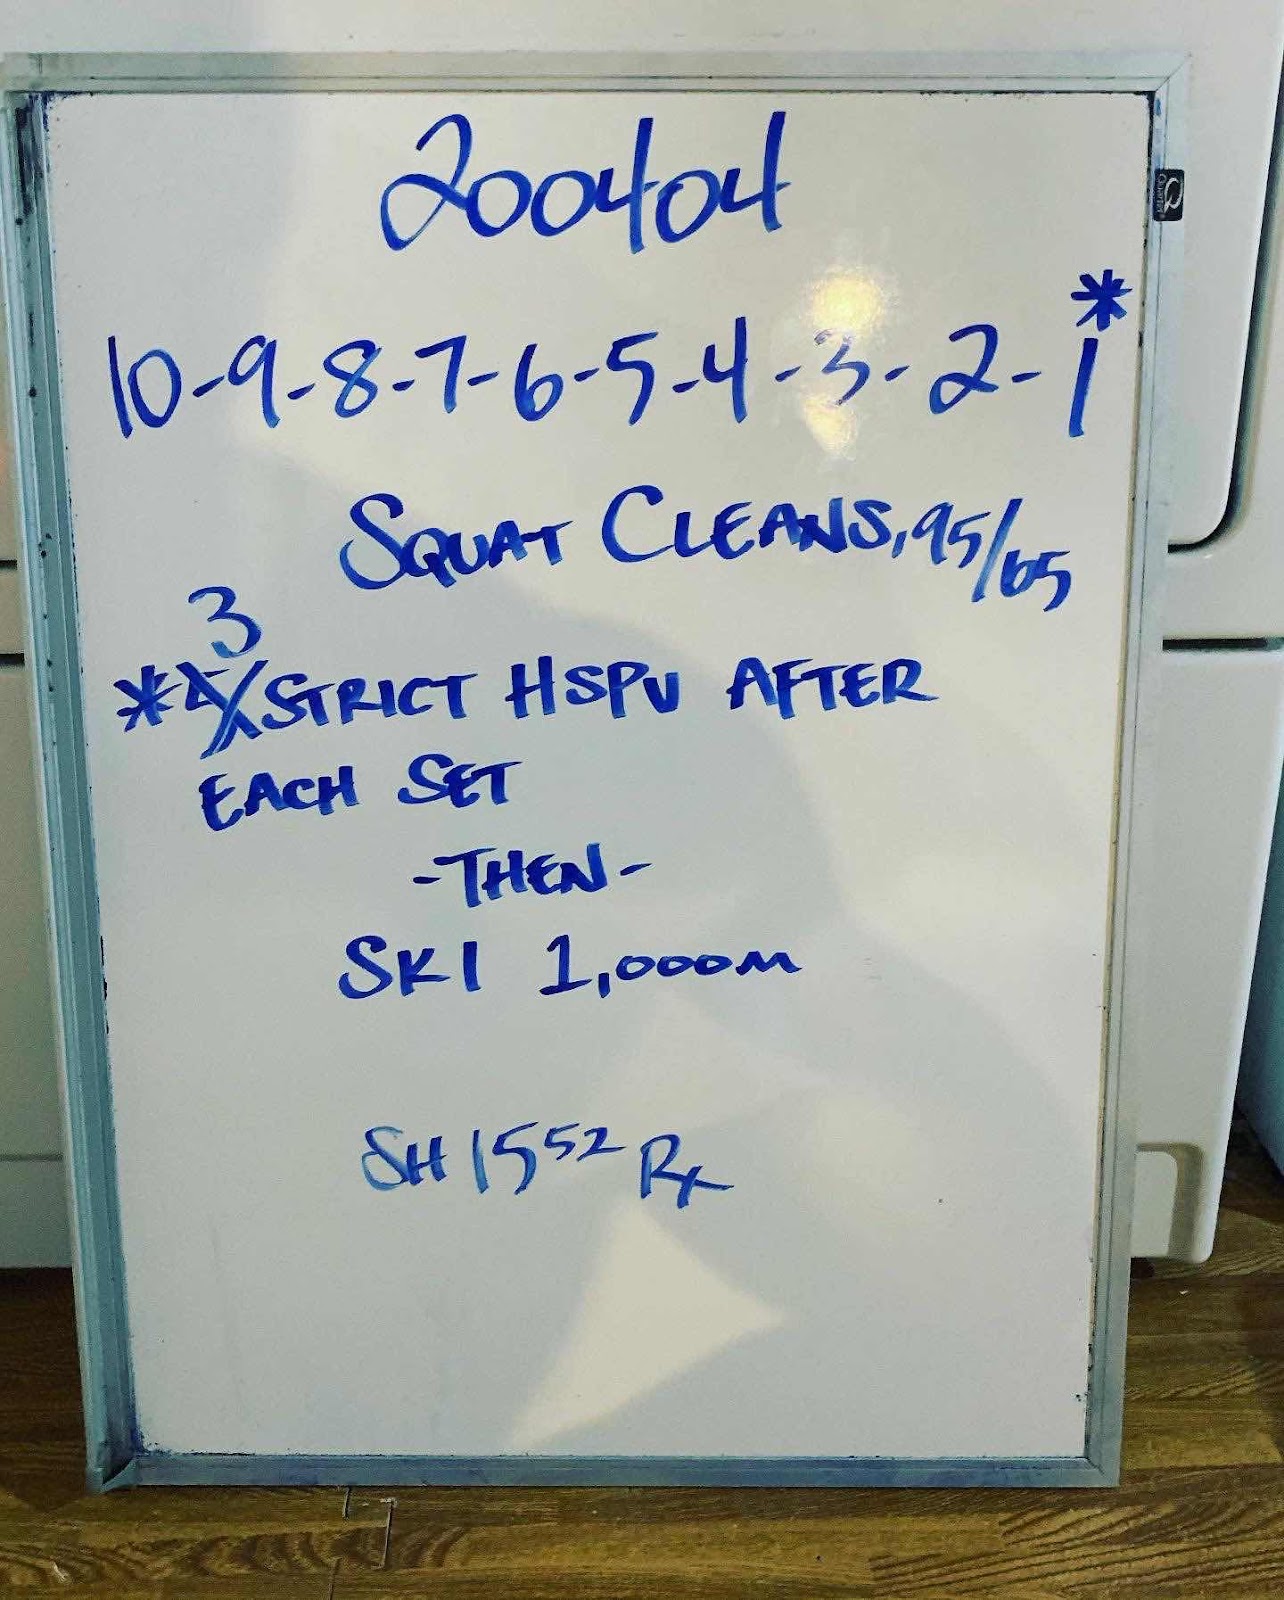 200404
10-9-8-7-6-5-4-3-2-1*
SQUAT CLEANS, 95/65
3
* STRICT HSPU AFTER
EACH SET
-THEN-
SKI 1,000M
SH 15 52 Rx
Quartet